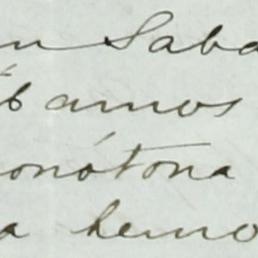 en Saba
bamos
onótona
a hemo